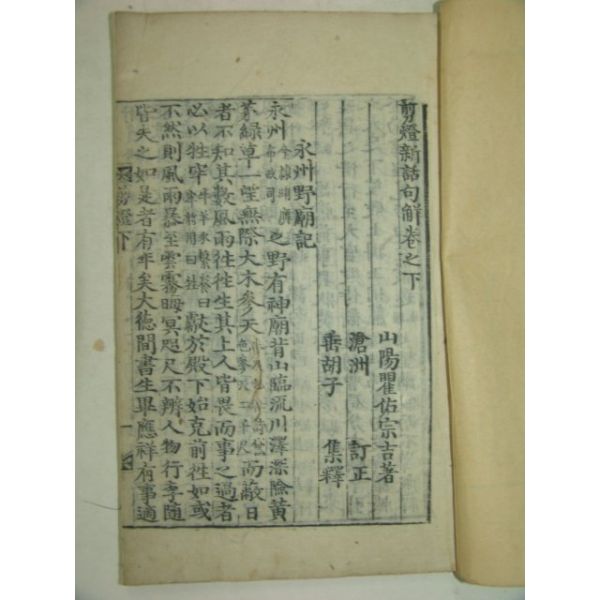 剪燈新話句解卷之下
山陽瞿佑宗吉著
滄洲 訂正
垂胡子 集釋
永州野廟記
永州之野有神廟背山臨流川澤深險黃
茅綠草一望無際大木參天而蔽日
者不知其數風雨徃徃生其上人皆畏而事之過者
必以牲牢獻於殿下始克前徃如或
不然則風雨暴至雲霧晦冥咫尺不辨人物行李隨
皆失之如是者有年矣大德間書生畢應祥有事適
剪燈下